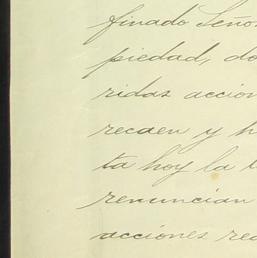 finado Seño
piedad, do
ridas accion
recaen y h
ta hoy la
renuncian
acciones rec